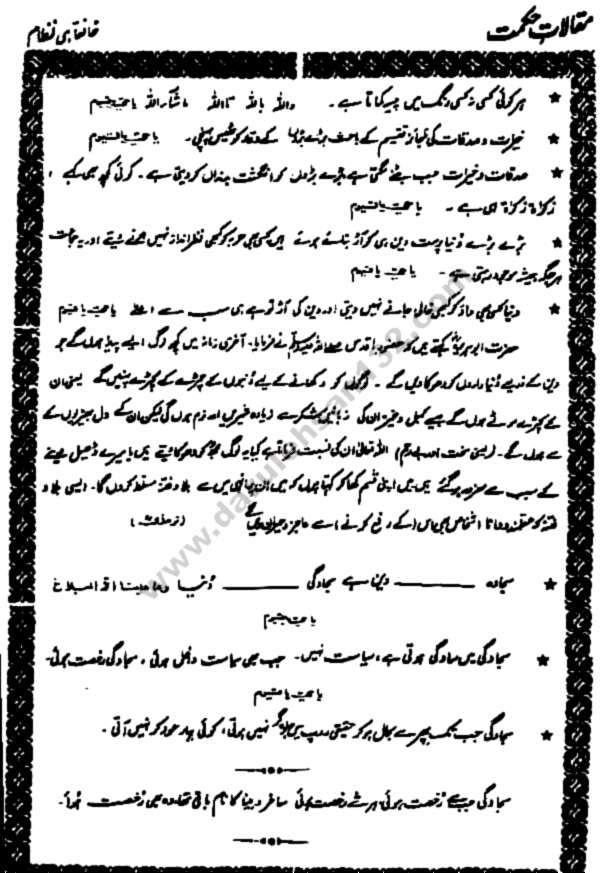 مقالاتِ حکمت
خانقاہی نظام
★ ہر کوئی کسی نہ کسی رنگ میں پیر کہاتا ہے۔ واللہ باللہ تاللہ ماشاءاللہ یا حی یا قیوم
★ خیرات و صدقات کی ناجائز تقسیم کے باعث بڑے بڑوں کے وقار کو ٹھیس پہنچی۔ یا حی یا قیوم
★ صدقات و خیرات جب بٹنے لگتی ہے بڑے بڑوں کو انگشت بدنداں کر دیتی ہے۔ کوئی کچھ بھی کہے،
زکوٰۃ زکوٰۃ ہی ہے۔ یا حی یا قیوم
★ بڑے بڑے دُنیا پرست دین ہی کو آڑ بنائے ہوئے ہیں کسی بھی حربہ کو کبھی نظر انداز نہیں ہونے دیتے اور یہ
ہر جگہ ہمیشہ موجود رہتی ہے۔ یا حی یا قیوم
★ دنیا کسی بھی داؤ کو کبھی خالی جانے نہیں دیتی اور دین کی آڑ تو ہے ہی سب سے اعلےٰ یا حی یا قیوم
حضرت ابوہریرہؓ کہتے ہیں کہ حضور اقدس صلی اللہ علیہ وسلم نے فرمایا۔ آخری زمانہ میں کچھ لوگ ایسے پیدا ہوں گے جو
دین کے ذریعے دُنیا داروں کو دھوکا دیں گے۔ لوگوں کو دکھانے کے لیے دُنبوں کے چمڑے کے کپڑے پہنیں گے یعنی اُن
کے کپڑے ہوں گے جیسے کمبل وغیرہ ان کی زبانیں شکر سے زیادہ شیریں اور نرم ہوں گی لیکن ان کے دل بھیڑیوں کے
سے ہوں گے۔ (یعنی سخت اور بے رحم) اللہ تعالیٰ ان کی نسبت فرماتا ہے کیا یہ لوگ مجھ کو دھوکا دیتے ہیں یا میرے ڈھیل دینے
کے سبب سے مغرور ہو گئے ہیں میں اپنی قسم کھا کر کہتا ہوں کہ میں ان پر انہی میں سے بلا و فتنہ مسلط کروں گا۔ ایسی بلا و
فتنہ کہ عقلمند و دانا اشخاص بھی اس (کے دفع کرنے) سے عاجز و حیران رہ جائیں گے (ترمذی)
★ سجادہ ــــــ دین ہے سجادگی ــــــ دُنیا وما علینا الا البلاغ
یا حی یا قیوم
★ سجادگی میں سادگی ہوتی ہے، سیاست نہیں۔ جب بھی سیاست داخل ہوئی، سجادگی رخصت ہوئی۔
یا حی یا قیوم
★ سجادگی جب تک پھر سے بحال ہو کر حقیقی روپ میں جلوہ گر نہیں ہوتی، کوئی بہار عود کر نہیں آتی۔
سجادگی جب سے رُخصت ہوئی ہر شے رخصت ہوئی ساغر و مینا کا نام باقی تھا وہ بھی رُخصت ہُوا۔
www.darulehsan132.com